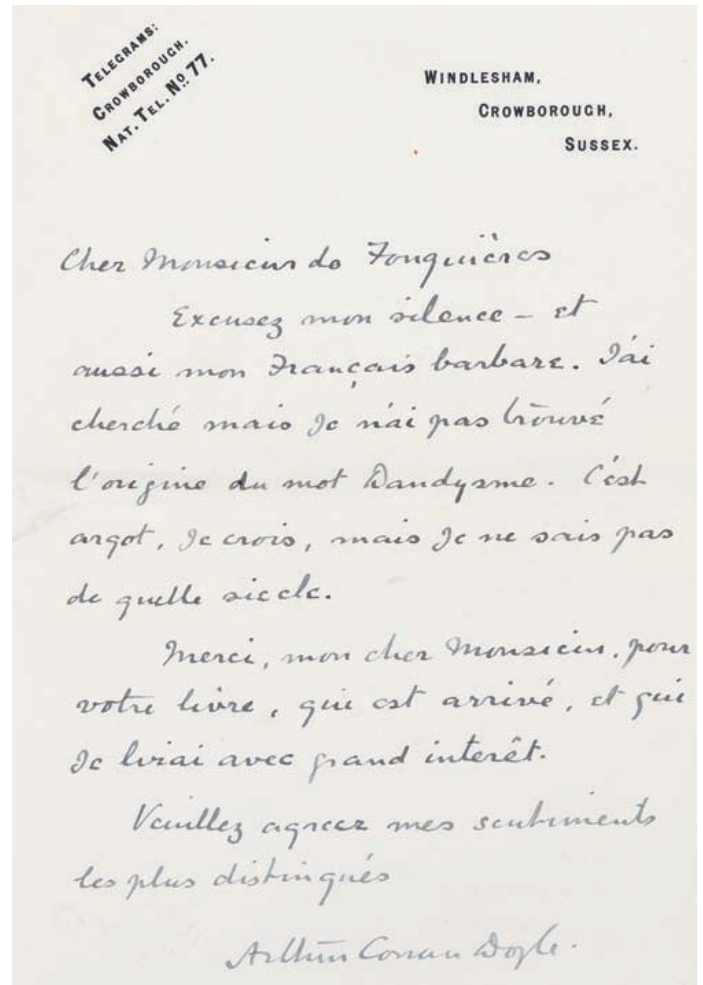 TELEGRAMS:
CROWBOROUGH.
NAT. TEL. No. 77.
WINDLESHAM,
CROWBOROUGH,
SUSSEX.
Cher Monsieur de Fouquières
Excusez mon silence – et
aussi mon Français barbare. J'ai
cherché mais Je n'ai pas trouvé
l'origine du mot Dandysme. C'est
argot, Je crois, mais Je ne sais pas
de quelle siecle.
Merci, mon cher Monsieur, pour
votre livre, qui est arrivé, et qui
Je lirai avec grand interêt.
Veuillez agreez mes sentiments
les plus distingués
Arthur Conan Doyle.